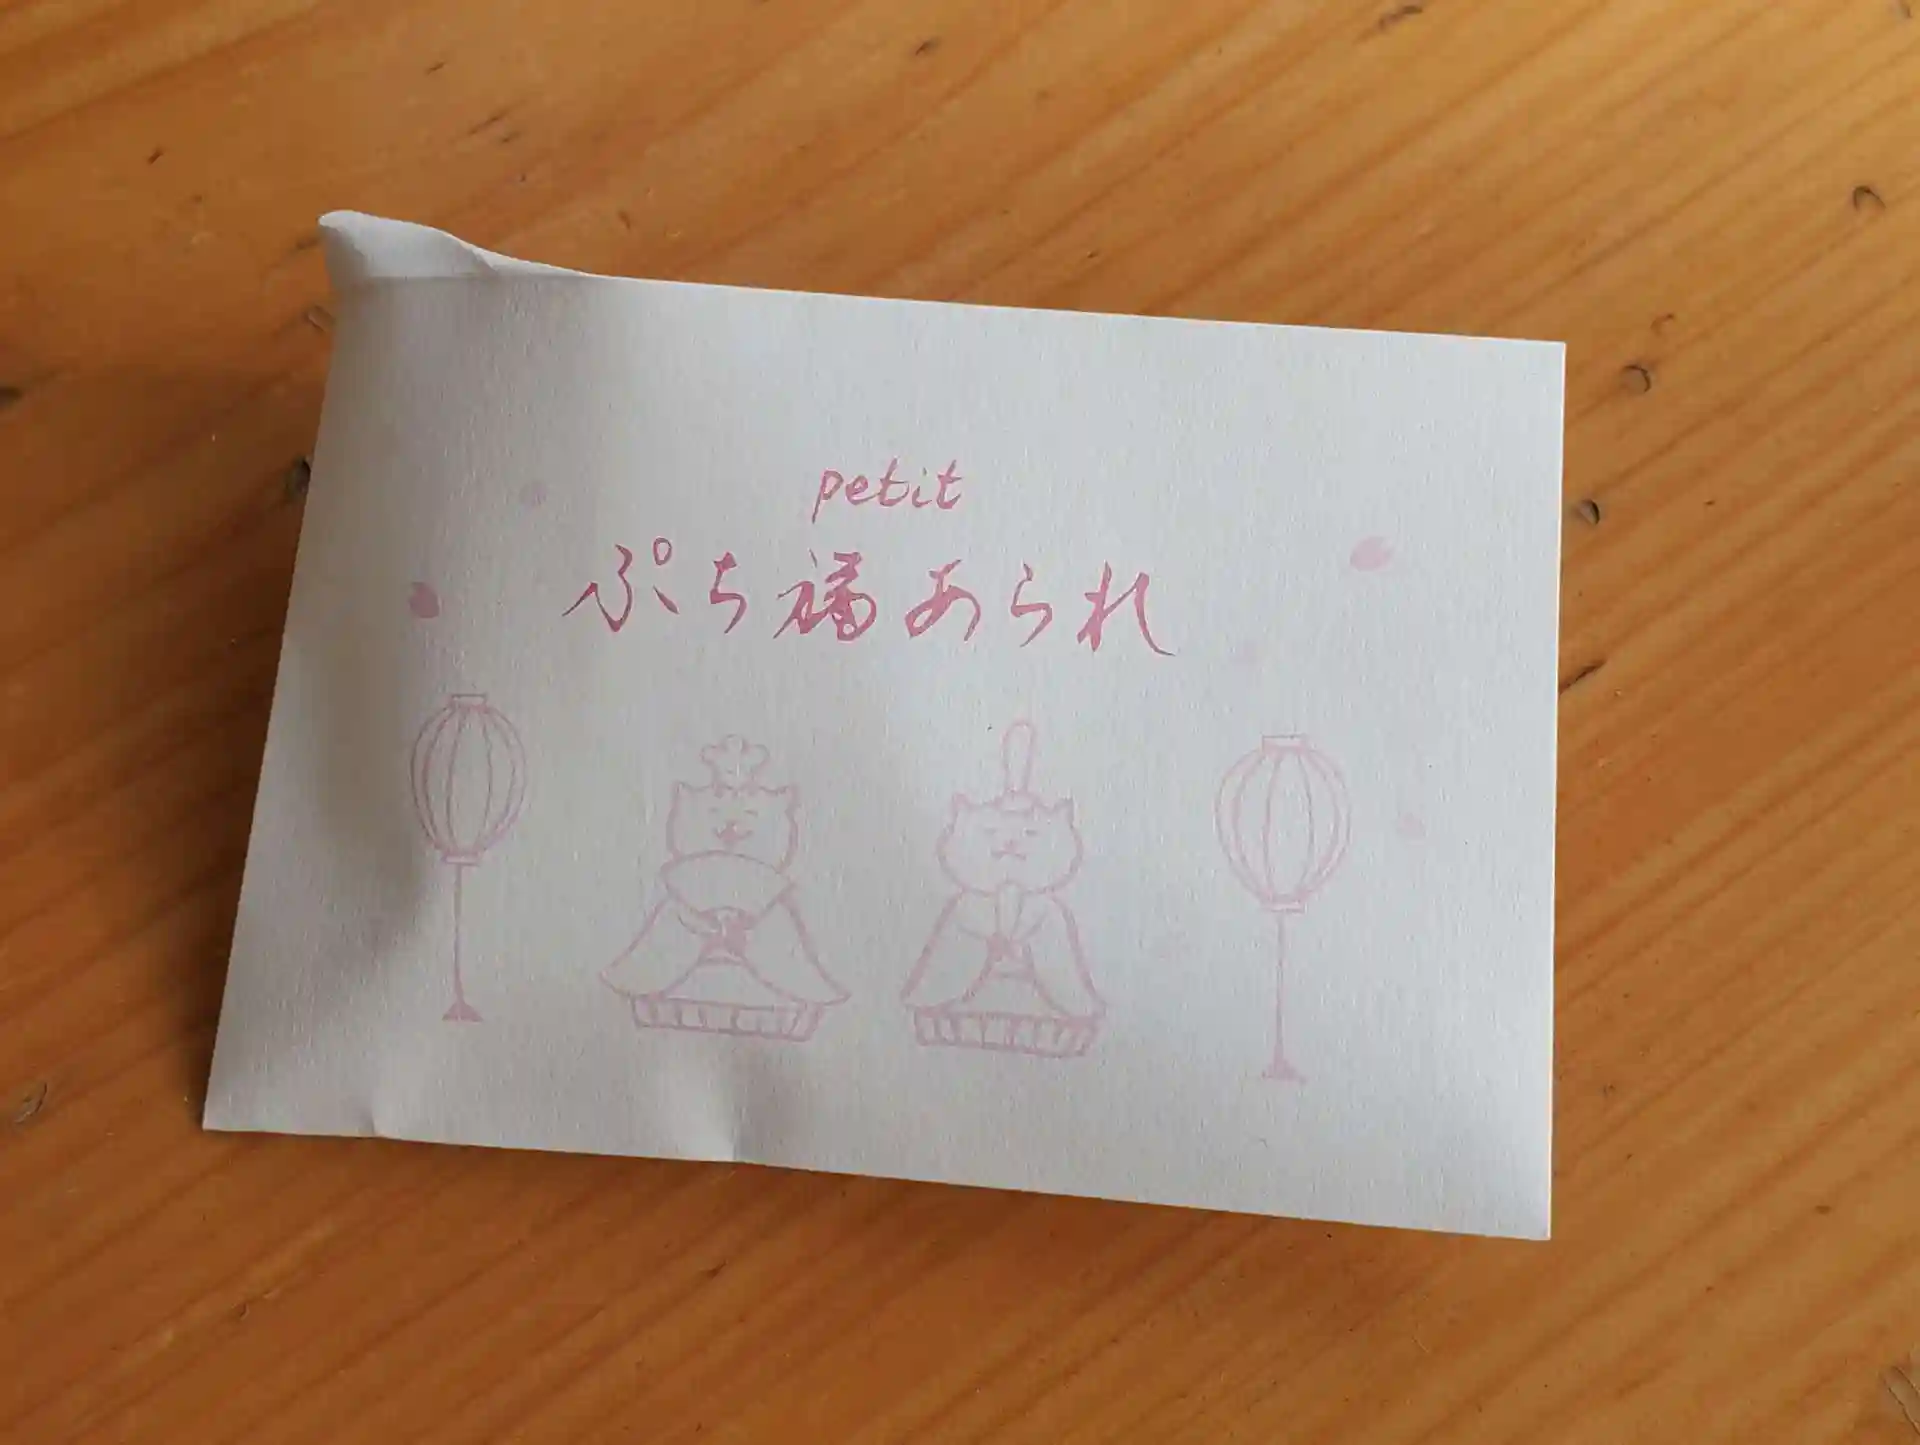 petit
ぷち福あられ